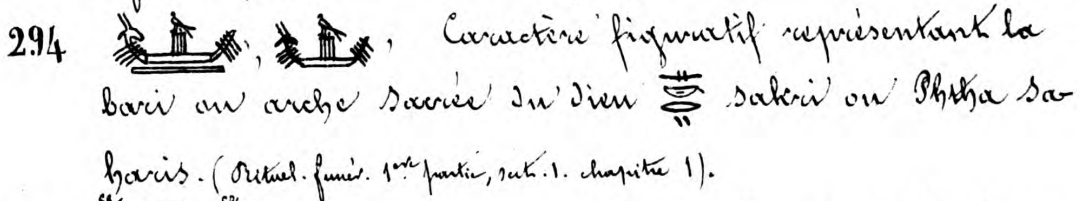 294 , , Caractère figuratif représentant la
bari ou arche sacrée du dieu sakri ou Phtha so-
haris. (Rituel. funér. 1ère partie, sect. 1. chapitre 1).